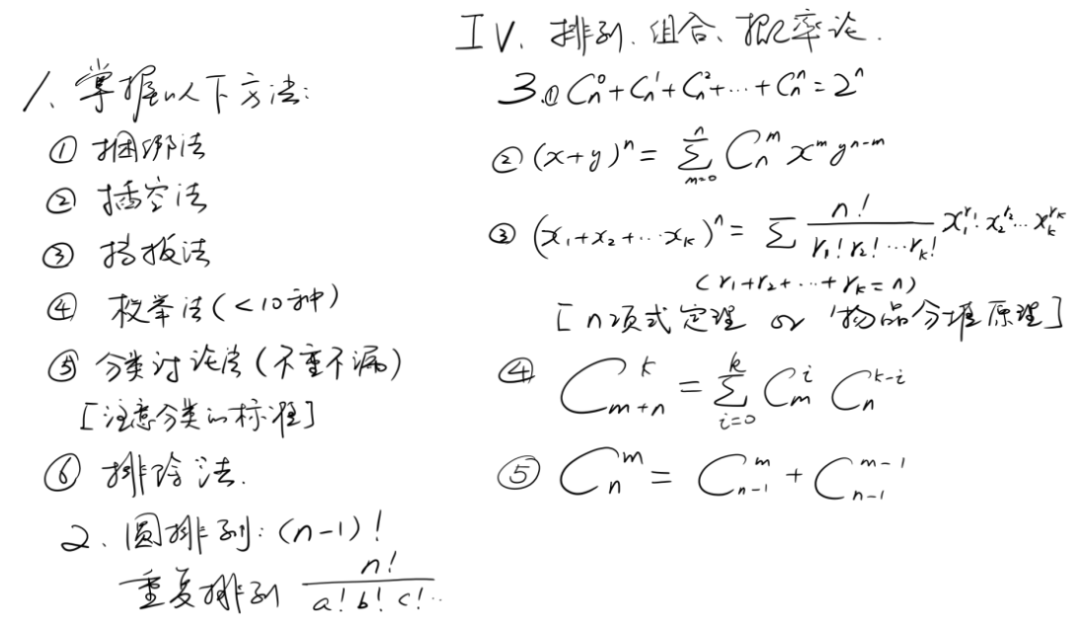 IV. 排列、组合、概率论.
1、掌握以下方法:
① 捆绑法
② 插空法
③ 挡板法
④ 枚举法(<10种)
⑤ 分类讨论法(不重不漏)
[注意分类的标准]
⑥ 排除法.
2、圆排列: (n-1)!
重复排列 n!/(a! b! c!…)
3.① C_n^0 + C_n^1 + C_n^2 + … + C_n^n = 2^n
② (x+y)^n = ∑_{m=0}^{n} C_n^m x^m y^{n-m}
③ (x_1+x_2+…x_k)^n = ∑ n!/(r_1! r_2! … r_k!) x_1^{r_1}·x_2^{r_2}…x_k^{r_k}
(r_1+r_2+…+r_k=n)
[n项式定理 or 物品分堆原理]
④ C_{m+n}^k = ∑_{i=0}^{k} C_m^i C_n^{k-i}
⑤ C_n^m = C_{n-1}^m + C_{n-1}^{m-1}